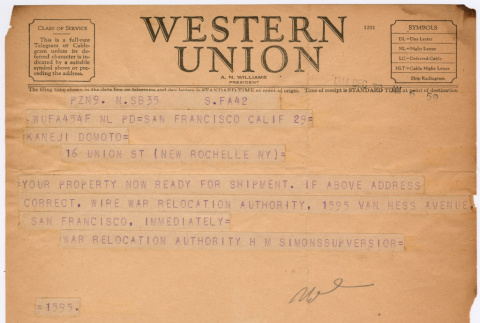 CLASS OF SERVICE
This is a full-rate Telegram or Cablegram unless its deferred character is indicated by a suitable symbol above or preceding the address.
WESTERN UNION
A. N. WILLIAMS
PRESIDENT
1201
SYMBOLS
DL=Day Letter
NL=Night Letter
LC=Deferred Cable
NLT=Cable Night Letter
Ship Radiogram
The filing time shown in the date line on telegrams and day letters is STANDARD TIME at point of origin. Time of receipt is STANDARD TIME at point of destination
PZN9. N.SB35 S.FA42
WUFA454F NL PD=SAN FRANCISCO CALIF 29=
KANEJI DOMOTO=
16 UNION ST (NEW ROCHELLE NY)=
YOUR PROPERTY NOW READY FOR SHIPMENT. IF ABOVE ADDRESS
CORRECT, WIRE WAR RELOCATION AUTHORITY, 1595 VAN HESS AVENUE
SAN FRANCISCO, IMMEDIATELY=
WAR RELOCATION AUTHORITY H M SIMONSSUPVERSIOR=
=1595.